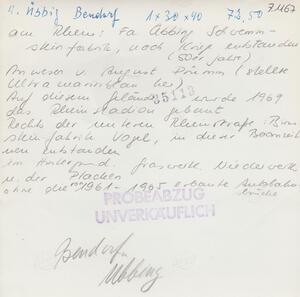 n. Übbig Bendorf 1 x 30 x 40 72,50 71167
am Rhein: Fa Übbing Schwemm-
steinfabrik, nach Krieg entstanden
(50er Jahr)
Anwesen v. August Prümm (stellte
Ultramarinblau her)
Auf diesem Gelände wurde 1969
das Rheinstadion gebaut
35113
Rechts der unteren Rheinstraße: Bims
steinfabrik Vogel, in dieser Boomzeit
neu entstanden
im Hintergrund. Graswerth. Niederwerth
u. der Flecken
ohne die 1961 - 1965 erbaute Autobahn
brücke
PROBEABZUG
UNVERKÄUFLICH
Bendorf
Übbing